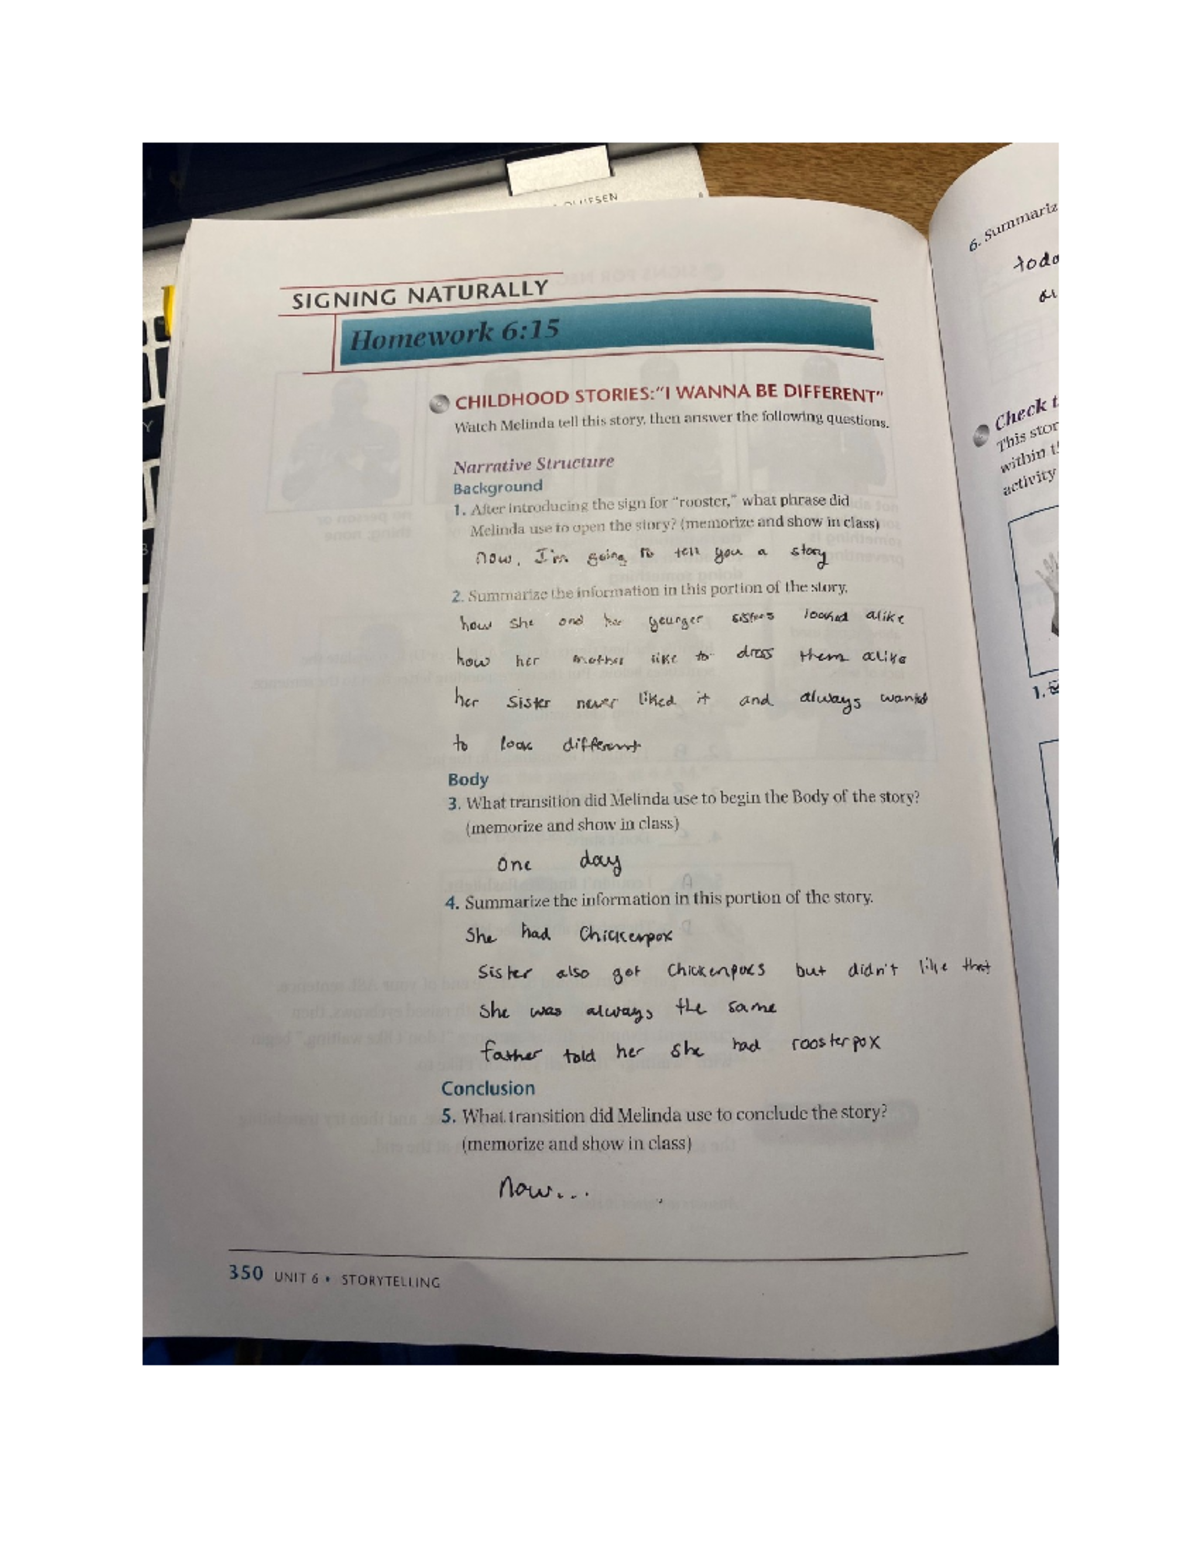 OLUFSEN
SIGNING NATURALLY
Homework 6:15
CHILDHOOD STORIES: "I WANNA BE DIFFERENT"
Watch Melinda tell this story, then answer the following questions.
Narrative Structure
Background
1. After introducing the sign for "rooster," what phrase did
Melinda use to open the story? (memorize and show in class)
now, I'm going to tell you a story
2. Summarize the information in this portion of the story.
how she and her younger sisters looked alike
how her mother like to dress them alike
her sister never liked it and always wanted
to look different
Body
3. What transition did Melinda use to begin the Body of the story?
(memorize and show in class)
one day
4. Summarize the information in this portion of the story.
She had Chickenpox
Sister also got Chickenpocs but didn't like that
she was always the same
father told her she had roosterpox
Conclusion
5. What transition did Melinda use to conclude the story?
(memorize and show in class)
Now...
350 UNIT 6 • STORYTELLING
6. Summariz
toda
Check t
This stor
within t
activity
1.